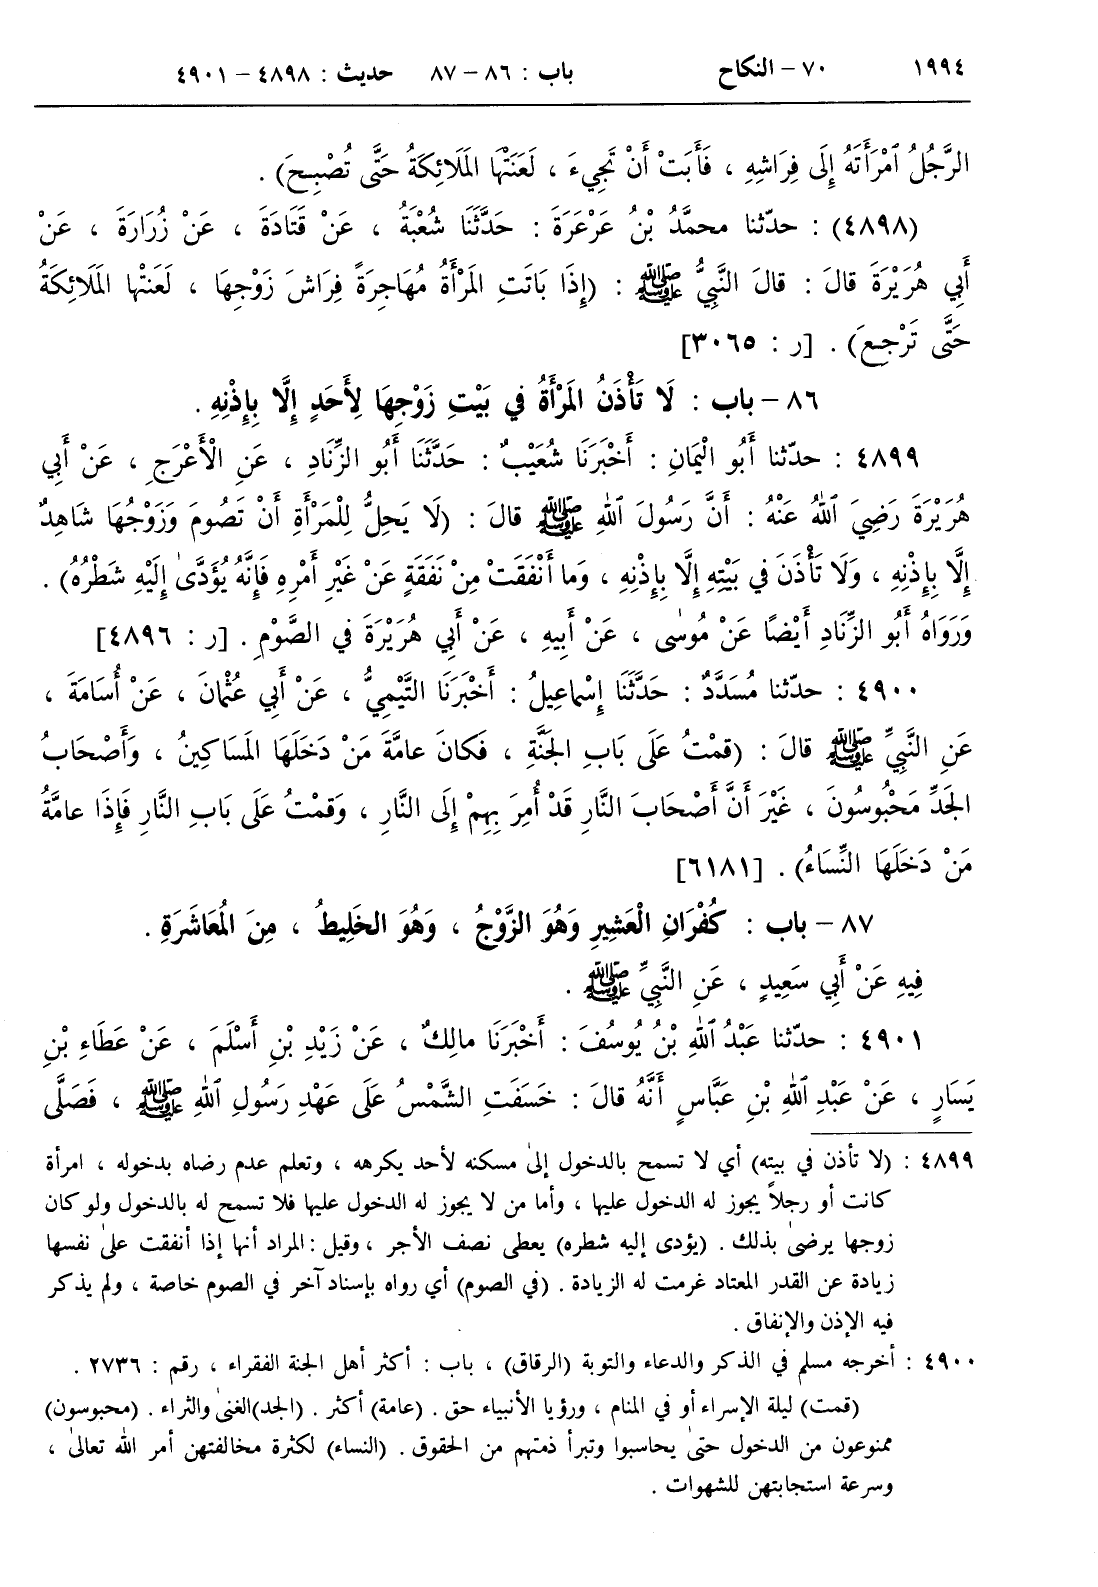 ١٩٩٤ ٧٠ – النكاح باب : ٨٦ – ٨٧ حديث : ٤٨٩٨ – ٤٩٠١
الرَّجُلُ ٱمْرَأَتَهُ إِلَى فِرَاشِهِ ، فَأَبَتْ أَنْ تَجِيءَ ، لَعَنَتْهَا المَلَائِكَةُ حَتَّى تُصْبِحَ) .
(٤٨٩٨) : حدّثنا محمَّدُ بْنُ عَرْعَرَةَ : حَدَّثَنَا شُعْبَةُ ، عَنْ قَتَادَةَ ، عَنْ زُرَارَةَ ، عَنْ
أَبِي هُرَيْرَةَ قالَ : قالَ النَّبِيُّ ﷺ : (إِذَا بَاتَتِ المَرْأَةُ مُهَاجِرَةً فِرَاشَ زَوْجِهَا ، لَعَنَتْها المَلَائِكَةُ
حَتَّى تَرْجِعَ) . [ر : ٣٠٦٥]
٨٦ – باب : لَا تَأْذَنُ المَرْأَةُ في بَيْتِ زَوْجِهَا لِأَحَدٍ إِلَّا بِإِذْنِهِ .
٤٨٩٩ : حدّثنا أَبُو الْيَمَانِ : أَخْبَرَنَا شُعَيْبٌ : حَدَّثَنَا أَبُو الزِّنَادِ ، عَنِ الْأَعْرَجِ ، عَنْ أَبِي
هُرَيْرَةَ رَضِيَ ٱللهُ عَنْهُ : أَنَّ رَسُولَ ٱللهِ ﷺ قالَ : (لَا يَحِلُّ لِلْمَرْأَةِ أَنْ تَصُومَ وَزَوْجُهَا شَاهِدٌ
إِلَّا بِإِذْنِهِ ، وَلَا تَأْذَنَ في بَيْتِهِ إِلَّا بِإِذْنِهِ ، وَما أَنْفَقَتْ مِنْ نَفَقَةٍ عَنْ غَيْرِ أَمْرِهِ فَإِنَّهُ يُؤَدَّىٰ إِلَيْهِ شَطْرُهُ) .
وَرَوَاهُ أَبُو الزِّنَادِ أَيْضًا عَنْ مُوسٰى ، عَنْ أَبِيهِ ، عَنْ أَبِي هُرَيْرَةَ في الصَّوْمِ . [ر : ٤٨٩٦]
٤٩٠٠ : حدّثنا مُسَدَّدٌ : حَدَّثَنَا إِسْماعِيلُ : أَخْبَرَنَا التَّيْمِيُّ ، عَنْ أَبِي عُثْمَانَ ، عَنْ أُسَامَةَ ،
عَنِ النَّبِيِّ ﷺ قالَ : (قمْتُ عَلَى بَابِ الجَنَّةِ ، فَكانَ عامَّةَ مَنْ دَخَلَهَا المَسَاكِينُ ، وَأَصْحَابُ
الجَدِّ مَحْبُوسُونَ ، غَيْرَ أَنَّ أَصْحَابَ النَّارِ قَدْ أُمِرَ بِهِمْ إِلَى النَّارِ ، وَقمْتُ عَلَى بَابِ النَّارِ فَإِذَا عامَّةُ
مَنْ دَخَلَهَا النِّسَاءُ) . [٦١٨١]
٨٧ – باب : كُفْرَانِ الْعَشِيرِ وَهُوَ الزَّوْجُ ، وَهُوَ الخَلِيطُ ، مِنَ المُعَاشَرَةِ .
فِيهِ عَنْ أَبِي سَعِيدٍ ، عَنِ النَّبِيِّ ﷺ .
٤٩٠١ : حدّثنا عَبْدُ ٱللهِ بْنُ يُوسُفَ : أَخْبَرَنَا مالِكٌ ، عَنْ زَيْدِ بْنِ أَسْلَمَ ، عَنْ عَطَاءِ بْنِ
يَسَارٍ ، عَنْ عَبْدِ ٱللهِ بْنِ عَبَّاسٍ أَنَّهُ قالَ : خَسَفَتِ الشَّمْسُ عَلَى عَهْدِ رَسُولِ ٱللهِ ﷺ ، فَصَلَّى
٤٨٩٩ : (لا تأذن في بيته) أي لا تسمح بالدخول إلىٰ مسكنه لأحد يكرهه ، وتعلم عدم رضاه بدخوله ، امرأة
كانت أو رجلاً يجوز له الدخول عليها ، وأما من لا يجوز له الدخول عليها فلا تسمح له بالدخول ولو كان
زوجها يرضىٰ بذلك . (يؤدى إليه شطره) يعطى نصف الأجر ، وقيل : المراد أنها إذا أنفقت علىٰ نفسها
زيادة عن القدر المعتاد غرمت له الزيادة . (في الصوم) أي رواه بإسناد آخر في الصوم خاصة ، ولم يذكر
فيه الإذن والإنفاق .
٤٩٠٠ : أخرجه مسلم في الذكر والدعاء والتوبة (الرقاق) ، باب : أكثر أهل الجنة الفقراء ، رقم : ٢٧٣٦ .
(قمت) ليلة الإسراء أو في المنام ، ورؤيا الأنبياء حق . (عامة) أكثر . (الجد) الغنىٰ والثراء . (محبوسون)
ممنوعون من الدخول حتىٰ يحاسبوا وتبرأ ذمتهم من الحقوق . (النساء) لكثرة مخالفتهن أمر الله تعالىٰ ،
وسرعة استجابتهن للشهوات .